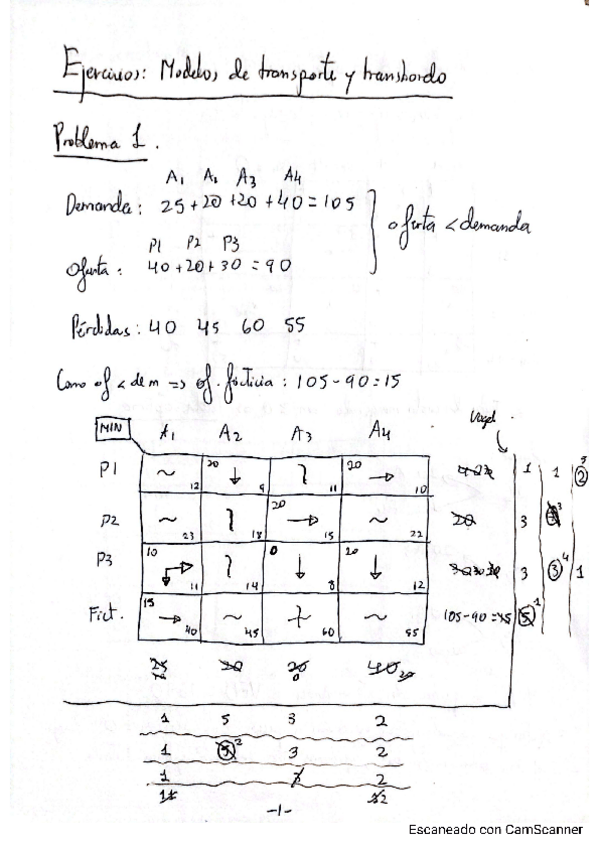 Ejercicios: Modelos de transporte y transbordo
Problema 1.
A1 A2 A3 A4
Demanda: 25+20+20+40=105
oferta < demanda
P1 P2 P3
Oferta: 40+20+30=90
Pérdidas: 40 45 60 55
Como of < dem => of. ficticia: 105-90=15
Vogel
MIN A1 A2 A3 A4
P1 12 20 9 11 20 10 1 1 2 5
P2 23 18 20 15 22 20 3 3
P3 10 11 14 0 8 20 12 3 3 4 1
Fict. 15 40 45 60 55 105-90=15 5 1
25 20 20 40 20
0
1 5 3 2
1 5 2 3 2
1 2
-1-
Escaneado con CamScanner